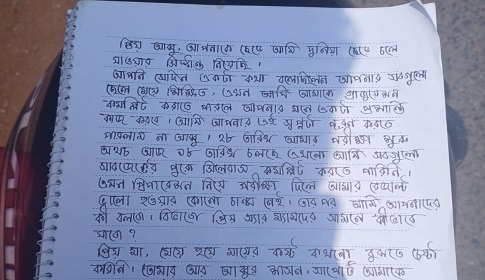 প্রিয় আব্বু, আপনাকে ছেড়ে আমি দুনিয়া ছেড়ে চলে
যাওয়ার সিদ্ধান্ত নিয়েছি।
আপনি সেদিন একটা কথা বলেছিলেন আপনার সবগুলো
ছেলে মেয়ে শিক্ষিত। এখন আমি আমাকে গ্রাজুয়েশন
কমপ্লিট করাতে পারলে আপনার মনে একটা প্রশান্তি
কাজ করবে। আমি আপনার এই স্বপ্নটা পূরণ করতে
পারলাম না আব্বু। ২৮ তারিখ আমার পরীক্ষা শুরু
অথচ আজ ১৮ তারিখ চলছে এখনো আমি সবগুলো
সাবজেক্টের পুরো সিলেবাস কমপ্লিট করতে পারিনি।
এমন প্রিপারেশন নিয়ে পরীক্ষা দিলে আমার রেজাল্ট
ভালো হওয়ার কোনো চান্স নেই। তারপর আমি আপনাদের
কী বলবো। বিভাগে প্রিয় স্যার ম্যামদের সামনে কীভাবে
যাবো?
প্রিয় মা, মেয়ে হয়ে মায়ের কষ্ট কখনো বুঝতে চেষ্টা
করিনি। তোমার আর আব্বুর শাসন, সাপোর্ট আমাকে